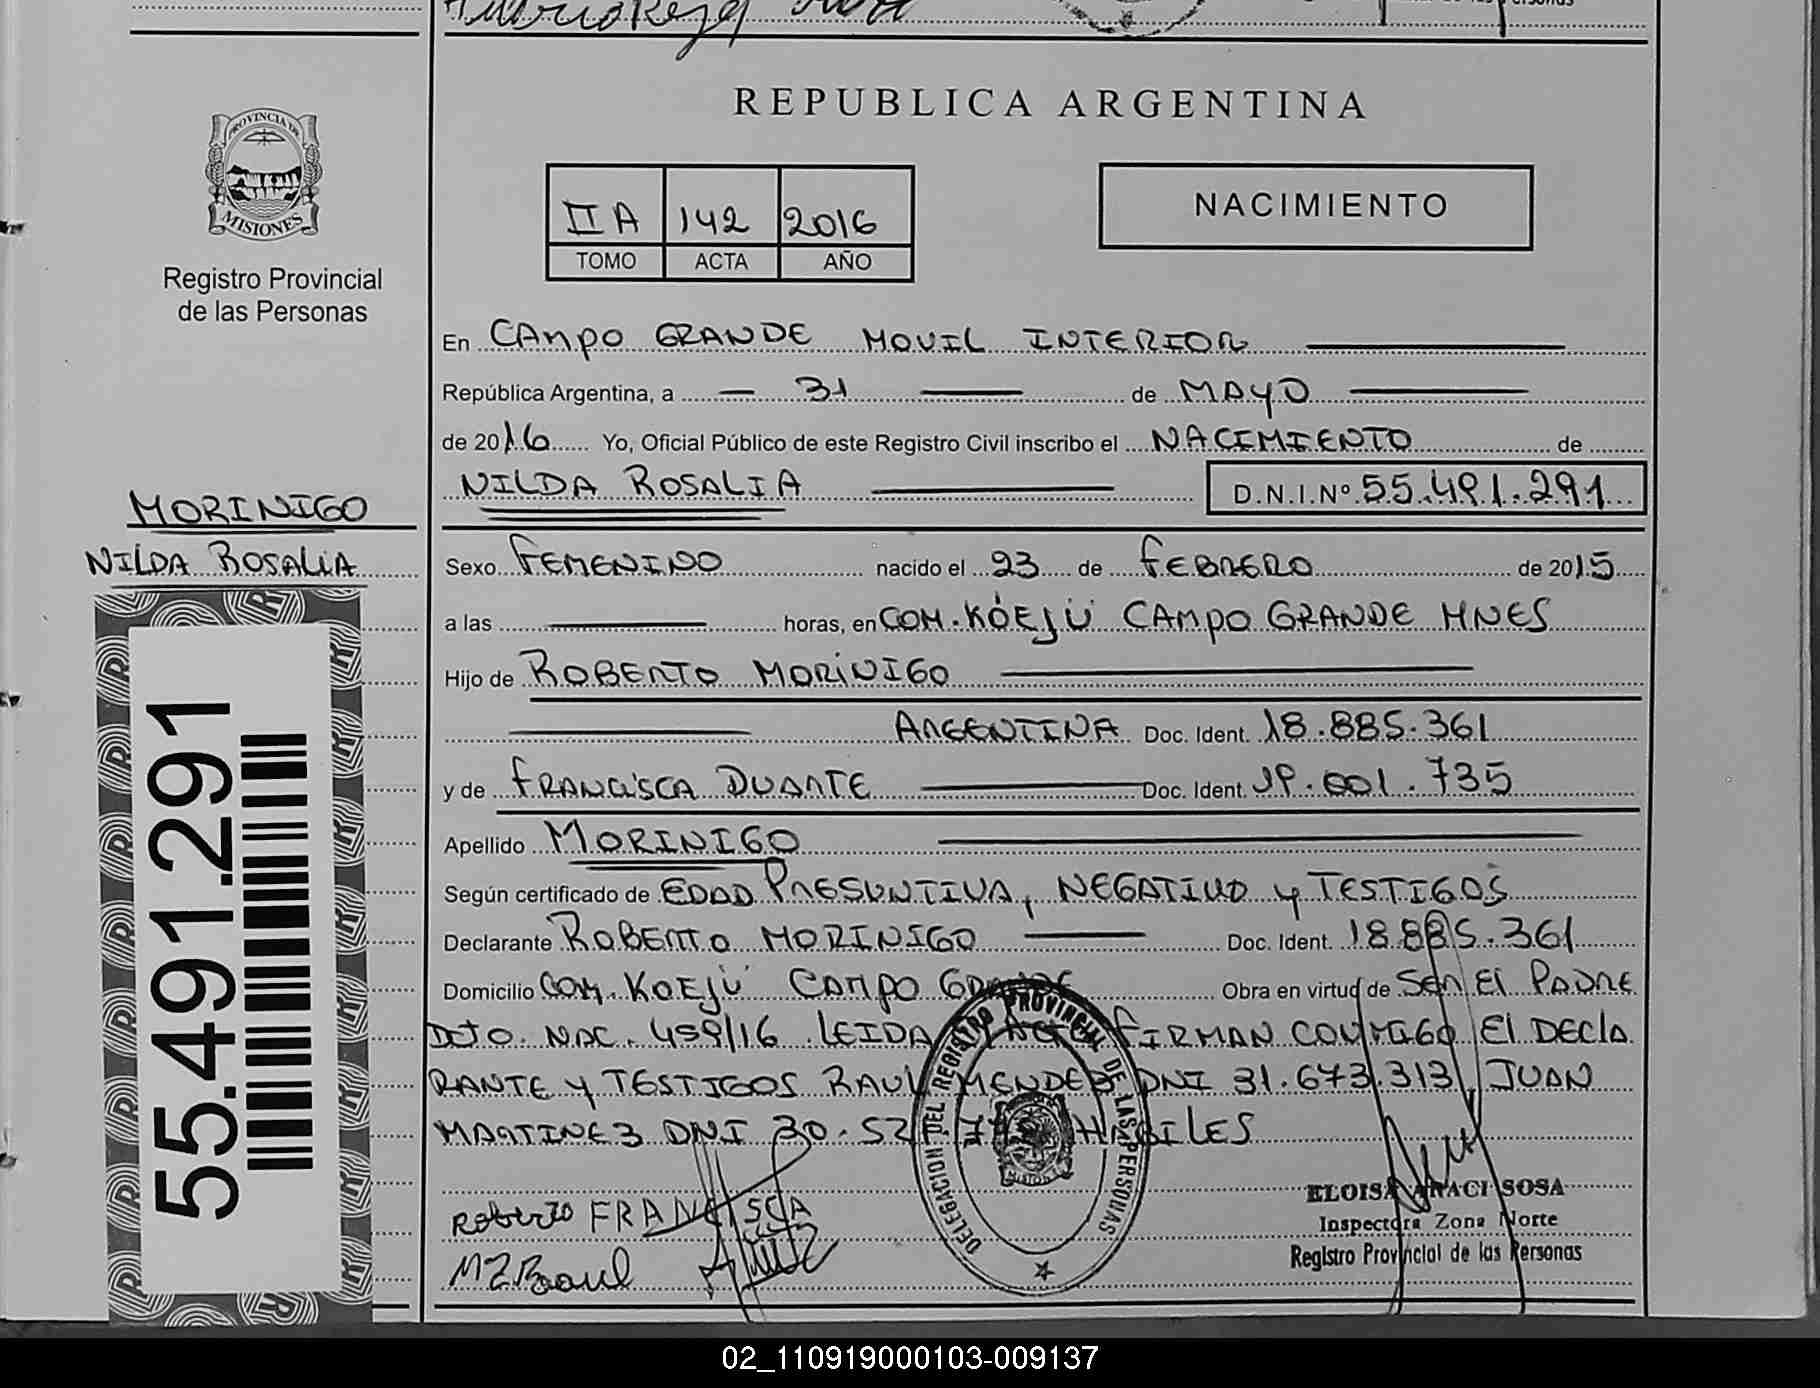 REPUBLICA ARGENTINA
PROVINCIA DE
MISIONES
Registro Provincial
de las Personas
IIA 142 2016
TOMO ACTA AÑO
NACIMIENTO
En CAMPO GRANDE MOVIL INTERIOR
República Argentina, a 31 de MAYO
de 2016 Yo, Oficial Público de este Registro Civil inscribo el NACIMIENTO de
NILDA ROSALIA D.N.I.Nº 55.491.291
MORINIGO
NILDA ROSALIA
55.491.291
Sexo FEMENINO nacido el 23 de FEBRERO de 2015
a las horas, en COM. KÓEJÚ CAMPO GRANDE MNES
Hijo de ROBERTO MORINIGO
ARGENTINA Doc. Ident. 18.885.361
y de FRANCISCA DUARTE Doc. Ident. 19.001.735
Apellido MORINIGO
Según certificado de EDAD PRESUNTIVA, NEGATIVO y TESTIGOS
Declarante ROBERTO MORINIGO Doc. Ident. 18.885.361
Domicilio COM. KOEJÚ CAMPO GRANDE Obra en virtud de SER El PADRE
DJO. NAC. 459/16 LEIDA FIRMAN CONMIGO El DECLA
RANTE y TESTIGOS RAUL MENDEZ DNI 31.673.313, JUAN
MARTINEZ DNI HABILES
DELEGACION DEL REGISTRO PROVINCIAL DE LAS PERSONAS
Roberto FRANCISCA
MZ Raoul
ELOISA ARACI SOSA
Inspectora Zona Norte
Registro Provincial de las Personas
02_110919000103-009137